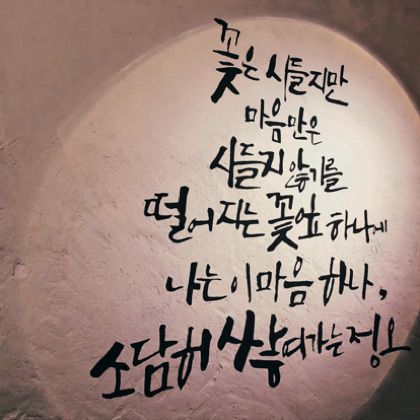 꽃은 시들지만
마음만은
시들지 않기를
떨어지는 꽃잎 하나에
나는 이 마음 하나,
정오